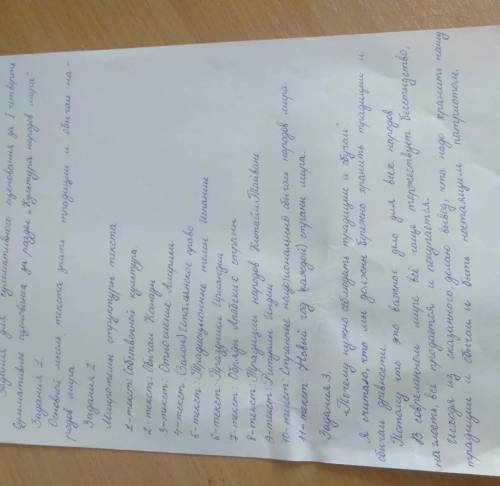 Задания для суммативного оценивания за I четверть
Суммативное оценивание за раздел "Культура народов мира"
Задания 1.
Основной мысль текста знать традиции и обычаи на-
родов мира.
Задания 2
Микротемы структуры текста
1-текст: (собственной) культура
2-текст: Обычаи Канады
3-текст: Отношение Америки
4-текст (Закон) Итальянского право
5-текст: Традиционные темы Испании
6-текст: Праздники Ирландии
7-текст: Обряды Азовских стран
8-текст: Традиции народов Китай и Тайвани
9-текст: Ритуалы Индии
10-текст: Странные национальные обычаи народов мира.
11-текст: Новый год каждой страны мира.
Задания 3.
"Почему нужно соблюдать традиции и обычаи"
Я считаю, что мы должны бережно хранить традиции и
обычаи древности.
Потому что это важное дело для всех народов
В современном мире всё чаще торжествует бесстыдство,
наглость, всё продается и покупается.
Исходя из сказанного делаю вывод, что надо хранить нашу
традиции и обычаи и быть настоящим патриотом.